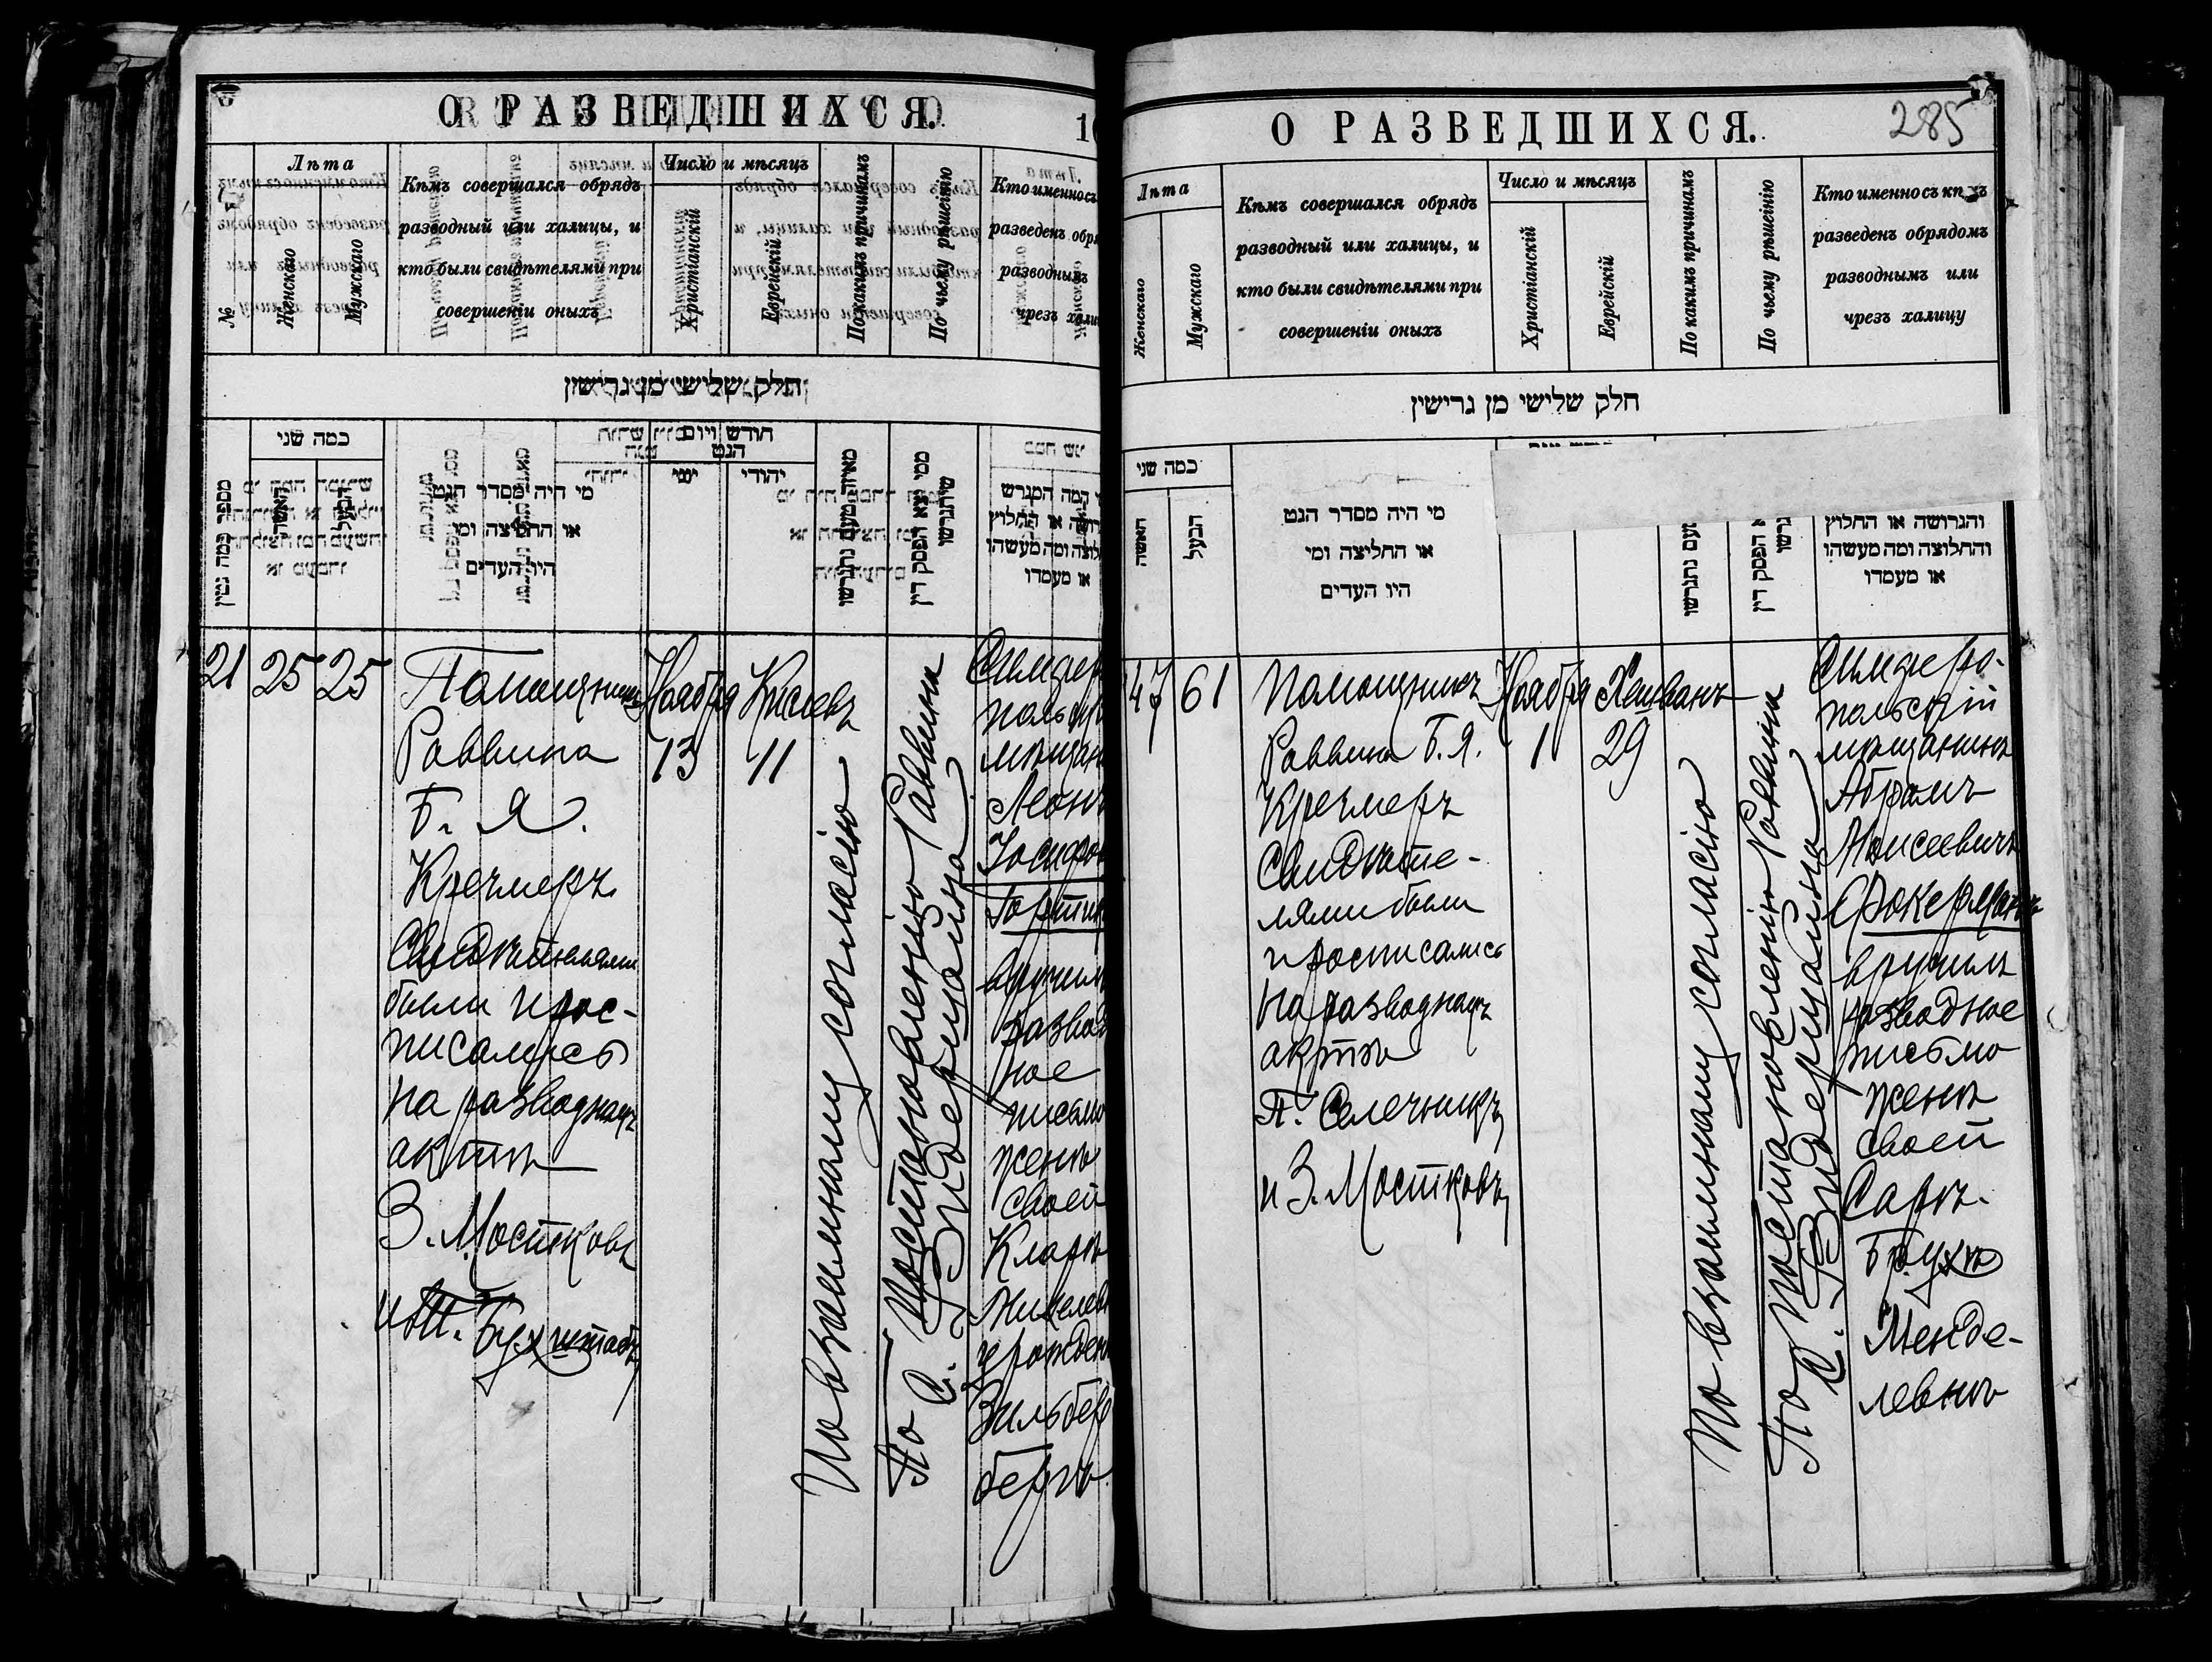 О РАЗВЕДШИХСЯ.
№
Лѣта
Женскаго
Мужскаго
Кѣмъ совершался обрядъ
разводный или халицы, и
кто были свидѣтелями при
совершеніи оныхъ
Число и мѣсяцъ
Христіанскій
Еврейскій
По какимъ причинамъ
По чьему рѣшенію
Кто именно съ
разведенъ
разводнымъ
чрезъ
חלק שלישי מן גרישין
כמה שני
האשה
הבעל
מי היה מסדר הגט
או החליצה ומי
היו העדים
יהודי
או מעמדו
21
25
25
Помощникъ
Раввина
Б. Я.
Кречмеръ
Свидѣтелями
были и рос-
писались
на разводномъ
актѣ
З. Мостковъ
и Ш. Бухштабъ
Ноября
13
Кислевъ
11
По взаимному согласію
По постановленію Раввина
С. Видермана
Симфер
польскій
мѣщан
Леонъ
Іосифов
вручилъ
развод
ное
письмо
женѣ
своей
Кларѣ
урожден
Зильбер
бергъ
О РАЗВЕДШИХСЯ.
285
Лѣта
Женскаго
Мужскаго
Кѣмъ совершался обрядъ
разводный или халицы, и
кто были свидѣтелями при
совершеніи оныхъ
Число и мѣсяцъ
Христіанскій
Еврейскій
По какимъ причинамъ
По чьему рѣшенію
Кто именно съ кѣмъ
разведенъ обрядомъ
разводнымъ или
чрезъ халицу
חלק שלישי מן גרישין
כמה שני
האשה
הבעל
מי היה מסדר הגט
או החליצה ומי
היו העדים
והגרושה או החלוץ
והחלוצה ומה מעשהו
או מעמדו
47
61
Помощникъ
Раввина Б. Я.
Кречмеръ
Свидѣте-
лями были
и росписались
на разводномъ
актѣ
П. Селечникъ
и З. Мостковъ
Ноября
1
Хешванъ
29
По взаимному согласію
По постановленію Раввина
С. Видермана
Симферо-
польскій
мѣщанинъ
Абрамъ
Моисеевичъ
Фокерманъ
вручилъ
разводное
письмо
женѣ
своей
Сарѣ-
Брухѣ
Менде-
левнѣ